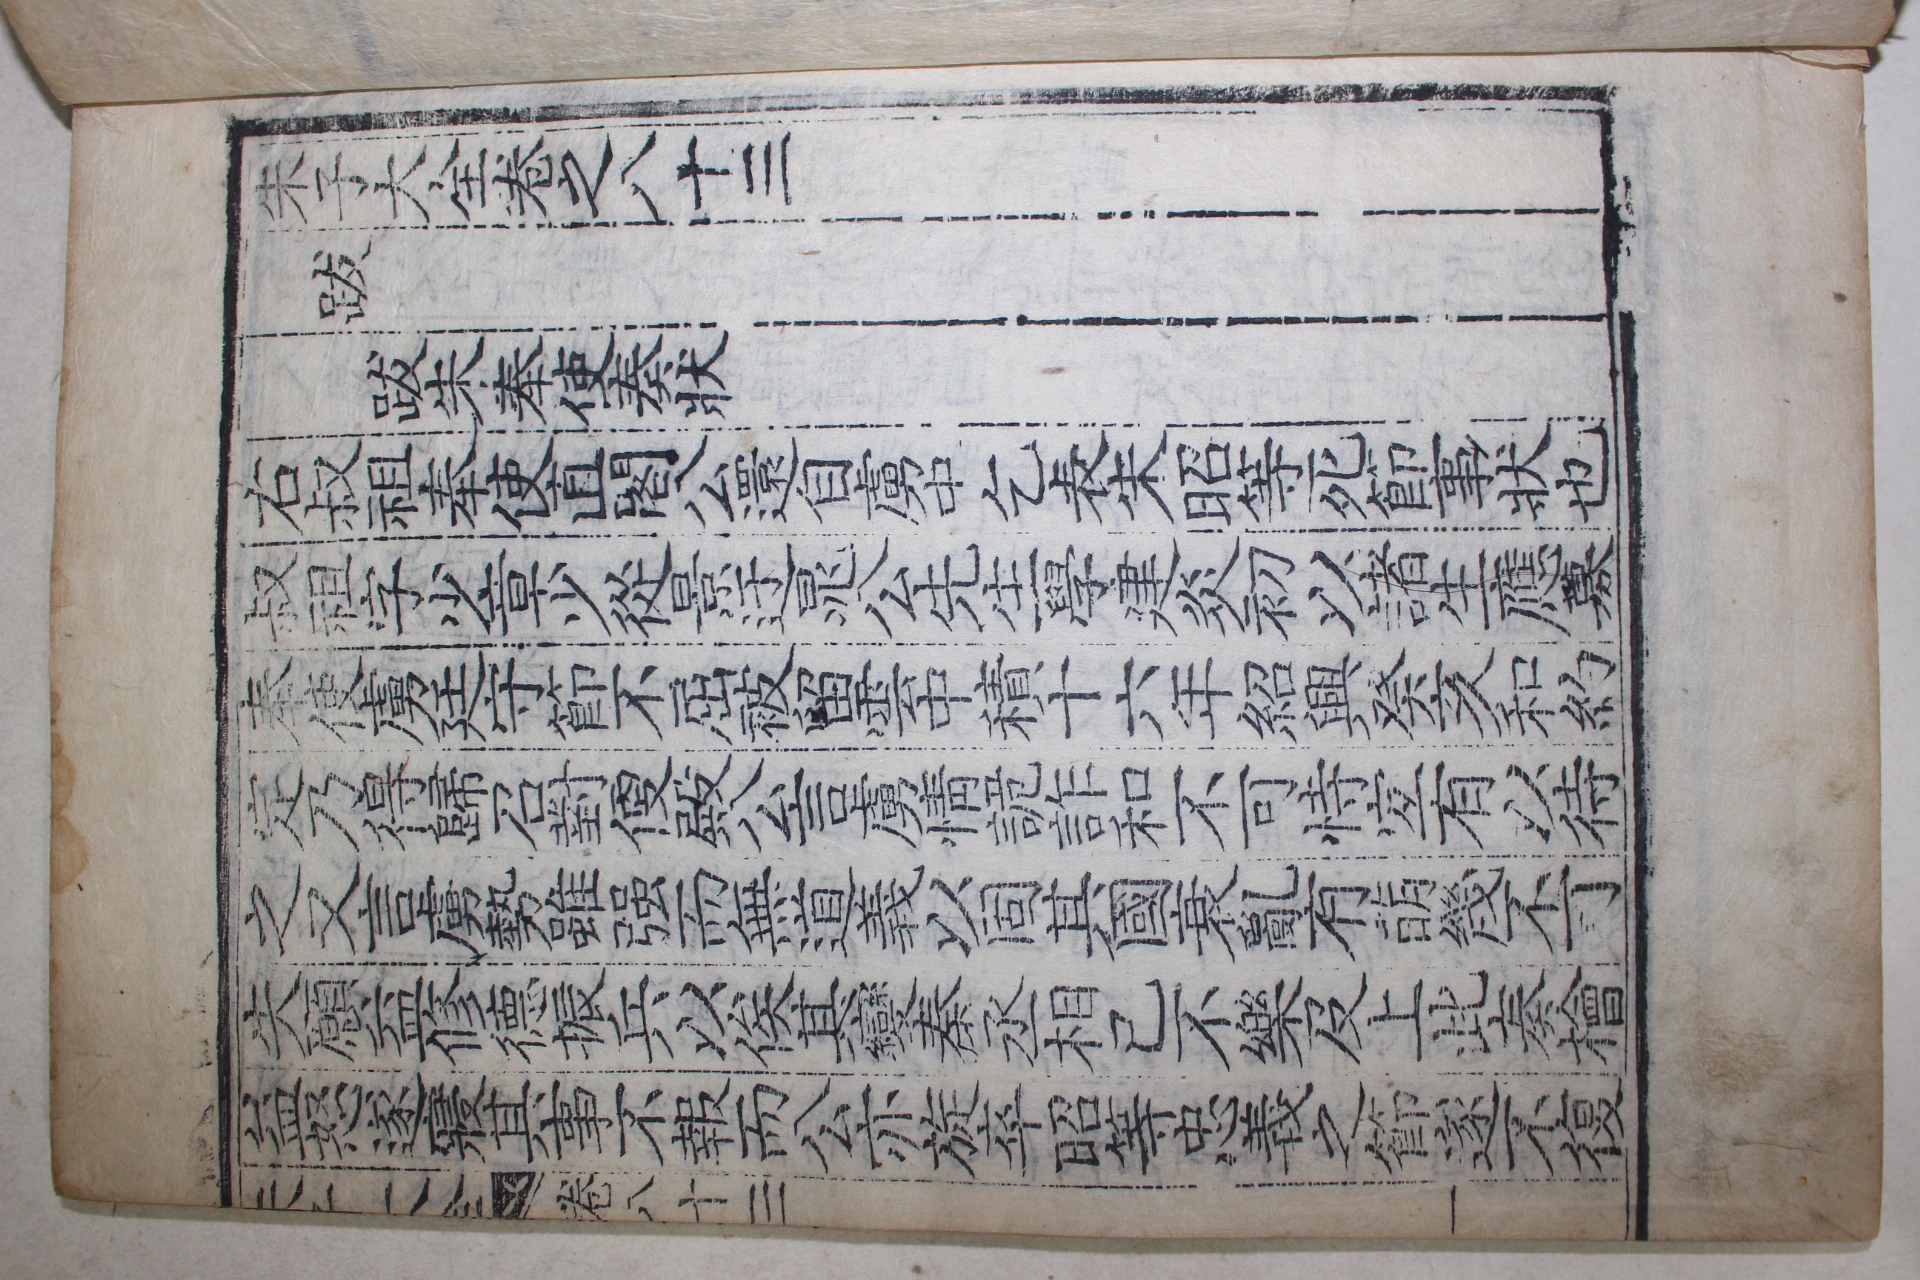 朱子大全卷之八十三
跋
跋朱奉使奏狀
右叔祖奉使直閣公還自虜中乞表朱昭等死節事狀也
叔祖字少章少從景迂晁公先生學建炎初以諸生應募
奉使虜廷守節不屈被留雲中積十六年紹興癸亥和約
定乃得歸召對便殿公言虜情詭詐和不可恃宜有以待
之又言虜勢雖强而無道義以固其國衰亂有萌幾不可
失願益修德振兵以俟其釁秦丞相已不樂及上此奏檜
益怒遂寢其事不報而公亦旋卒昭等忠義之節遂不復
卷八十三 一